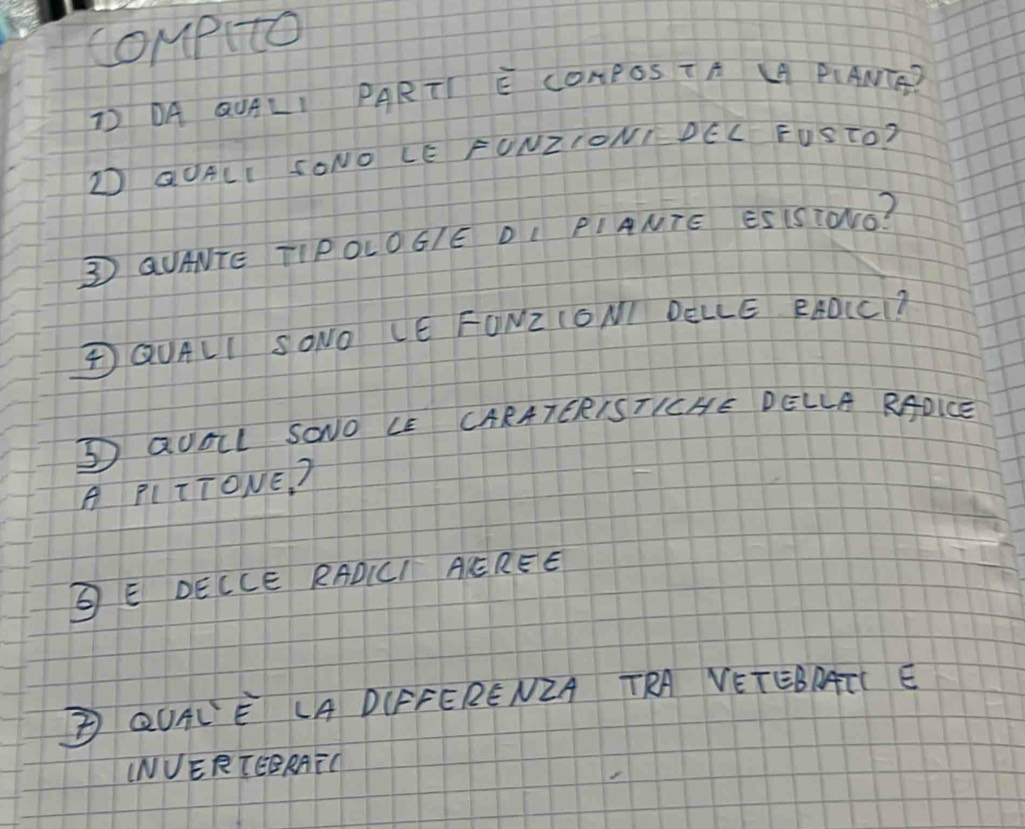 COMPITO
1) DA QUALI PARTI È COMPOSTA LA PIANTA?
2) QUALI SONO LE FUNZIONI DEL FUSTO?
3) QUANTE TIPOLOGIE DI PIANTE ESISTONO?
4) QUALI SONO LE FUNZIONI DELLE RADICI?
5) QUALI SONO LE CARATERISTICHE DELLA RADICE
A PITTONE?
6) E DELLE RADICI AEREE
7) QUAL'È LA DIFFERENZA TRA VETEBRATI E
INVERTEBRATI